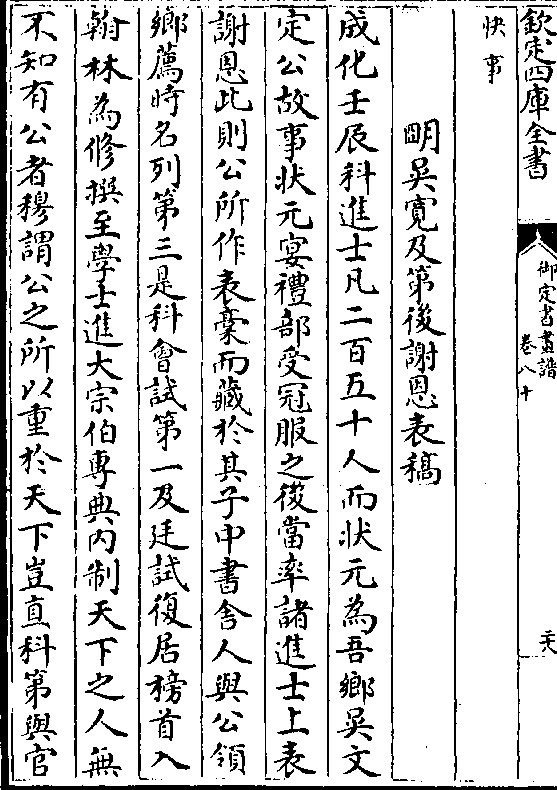 欽定四庫全書
御定書畫譜
卷八十
六
快事
明吳寛及第後謝恩表稿
成化壬辰科進士凡二百五十人而狀元為吾鄉吳文
定公故事狀元宴禮部受冠服之後當率諸進士上表
謝恩此則公所作表稾而藏於其子中書舍人與公領
鄉薦時名列第三是科會試第一及廷試復居榜首入
翰林為修撰至學士進大宗伯專典内制天下之人無
不知有公者穆謂公之所以重於天下豈直科第與官